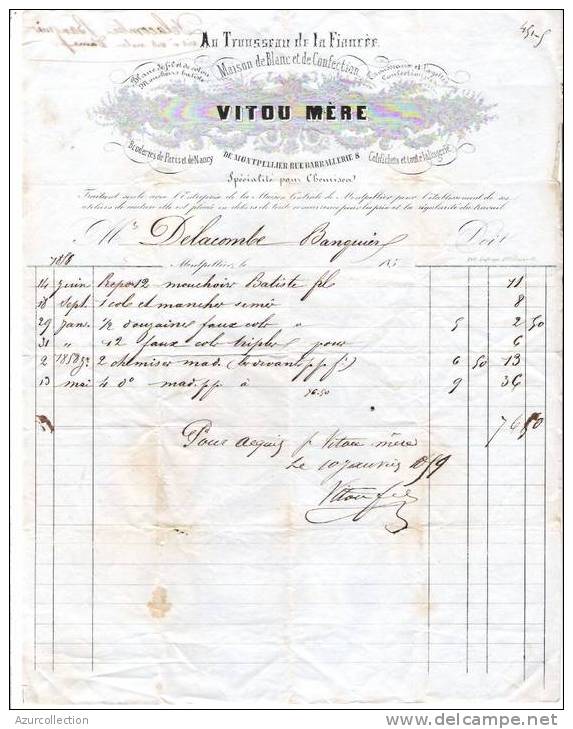 Au Trousseau de la Fiancée
Maison de Blanc et de Confection
Blanc de fil et de coton
Mouchoirs batiste
Trousseaux et Layettes
Confections
VITOU MÈRE
Broderies de Paris et de Nancy
DE MONTPELLIER RUE BARRALLERIE 8
Colifichets et toute la lingerie
Spécialité pour Chemises
Traitant seule avec l'Entreprise de la Maison Centrale de Montpellier pour l'établissement de ses
ateliers de couture elle est placée en dehors de toute concurrence pour le prix et la régularité du travail
Mr Delacombe Banquier Doit
1858 Montpellier, le 185
14 juin 12 mouchoirs Batiste fil 11
18 Sept. 1 col et manches 8
29 janv. 1/2 douzaine faux cols 5 2 50
31 " 12 faux cols triples pour 6
2 1858 2 chemises mad. 6 50 13
13 mai 4 do mad. pp à 9 36
76.50
76 50
Pour acquit p Vitou mère
Le 10 janvier 1859
Vitou fils
Azurcollection
www.delcampe.net